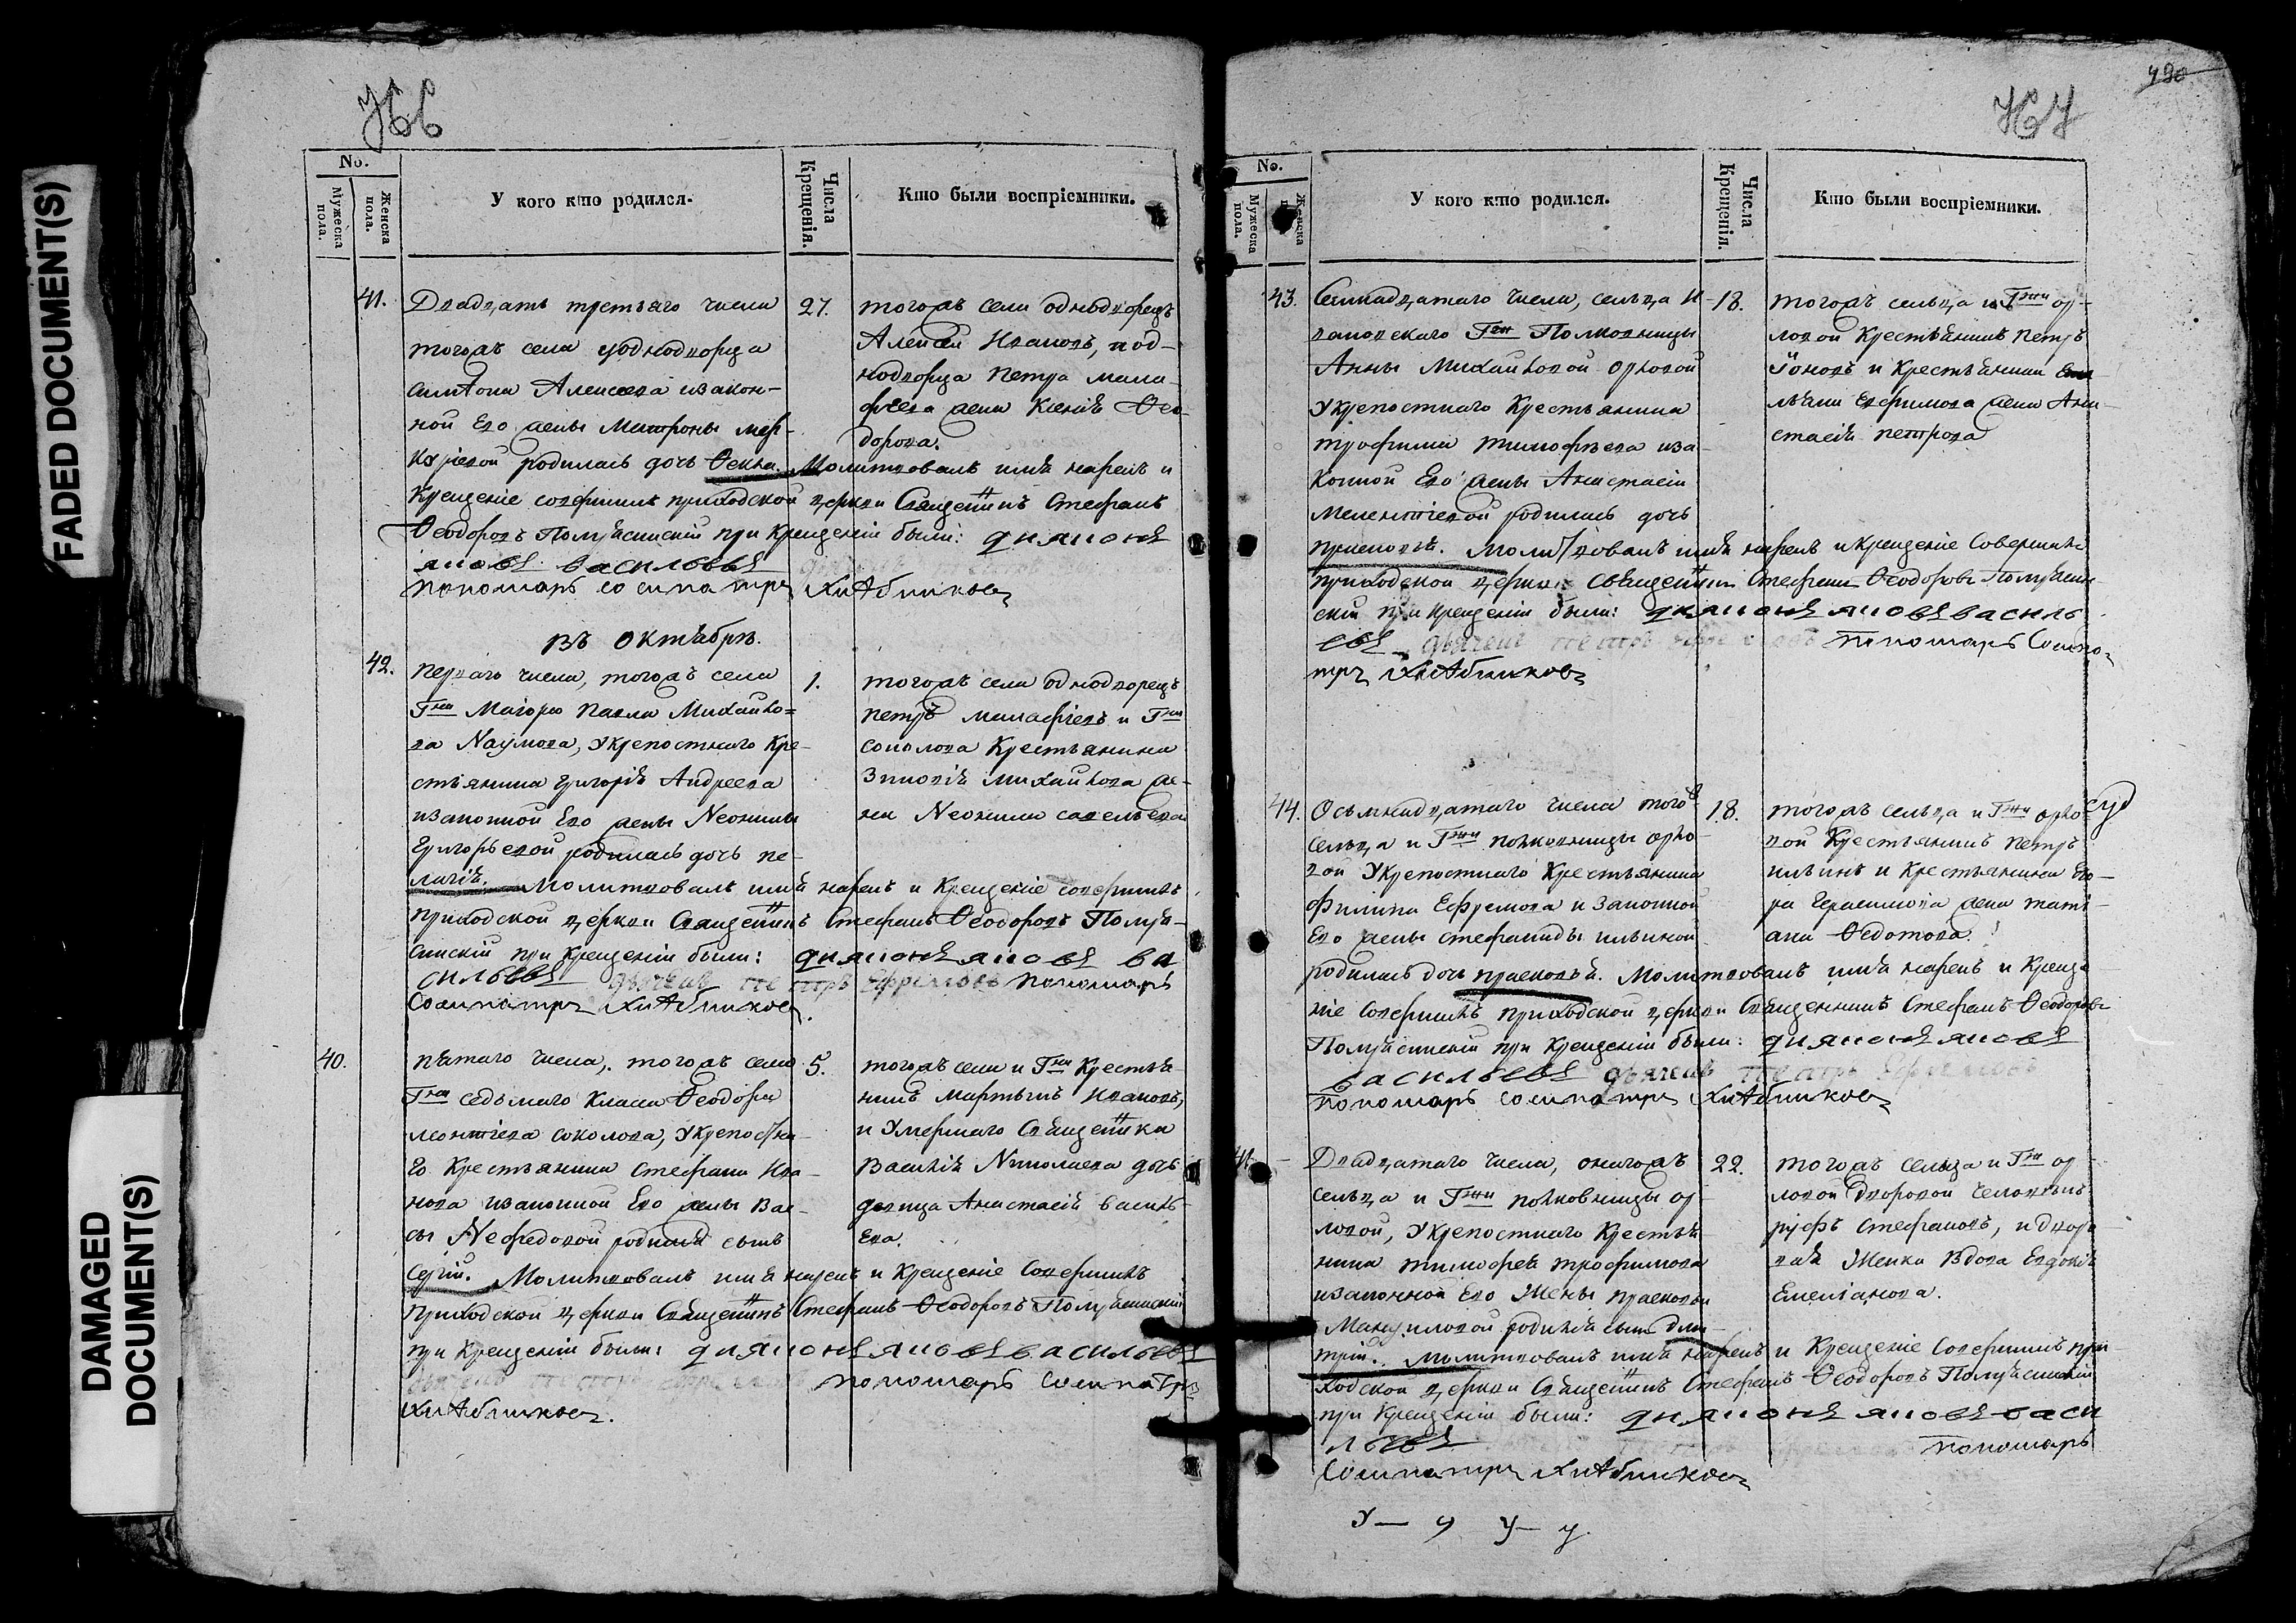 FADED DOCUMENT(S)
DAMAGED
DOCUMENT(S)
490
No.
Мужеска пола.
Женска пола.
У кого кто родился.
Числа Крещенія.
Кто были воспріемники.
41.
Двадцать третьяго числа
тогожъ села уоднодворца
Алексеева иззакон-
ной Его жены Матроны Мер-
куріевой родилась дочь Ѳекла. Молитвовалъ имя нарекъ и
Крещеніе совершилъ приходской церкви Священникъ Стефанъ
Ѳеодоровъ при Крещеніи были: дияконъ
яковъ васильевъ
пономарь
27.
тогожъ села однодворецъ
Алексей Ивановъ, иод-
нодворца Петра мала-
фѣева жена Ксенія Ѳео-
дорова.
въ Октябрѣ.
42.
перваго числа, тогожъ села
Гна Маіора Павла Михайло-
ва Наумова, Укрепостнаго Кре-
стьянина Григорія Андреева
изаконной Его жены Неонилы
Григорьевой родилась дочь пе-
лагія. Молитвовалъ имя нарекъ и Крещеніе совершилъ
приходской церкви Священникъ Стефанъ Ѳеодоровъ
при Крещеніи были: дияконъ яковъ ва
сильевъ дьячекъ петръ Ефремовъ пономарь
1.
тогожъ села однодворецъ
петръ малафіевъ и Гна
соколова Крестьянина
Зиновія михайлова же-
на Неонила савельева
40.
пятаго числа, тогожъ села
Гна седьмаго Класса Ѳеодора
леонтіева соколова, Укрепостна-
го Крестьянина Стефана Ива-
нова изаконной Его жены Вас-
сы Нефедовой родился сынъ
Сергій. Молитвовалъ имя нарекъ и Крещеніе Совершилъ
приходской церкви Священникъ Стефанъ Ѳеодоровъ
при Крещеніи были: дияконъ яковъ васильевъ
пономарь
5.
тогожъ села и Гна Крестья-
нинъ мартынъ Ивановъ,
и Умершаго Священника
Василія Николаева дочь
девица Анастасія василь-
ева.
No.
Мужеска пола.
Женска
У кого кто родился.
Числа Крещенія.
Кто были воспріемники.
43.
Семнадцатаго числа, сельца И-
вановскаго Гжи Полковницы
Анны Михайловой орловой
Укрепостнаго Крестьянина
трофима тимофѣева иза
конной Его жены Анастасіи
Мелентіевой родилась дочь
прасковія. молитвовалъ имя нарекъ и Крещеніе Совершилъ
приходской церкви Священникъ Стефанъ Ѳеодоровъ
при Крещеніи были: дияконъ яковъ василь
евъ дьячекъ петръ пономарь
18.
тогожъ сельца и Гжи ор-
ловой Крестьянинъ петръ
и Крестьянина
Ефимова жена Ана-
стасія петрова
44.
Осьмнадцатаго числа тогож
сельца и Гжи полковницы орло-
вой Укрепостнаго Крестьянина
Филипа Ефремова и Законной
Его жены стефаниды ильиной
родилась дочь прасковья. Молитвовалъ имя нарекъ и Креще
ніе Совершилъ приходской церкви Священникъ Стефанъ Ѳеодоровъ
при Крещеніи были: дияконъ яковъ
васильевъ дьячекъ петръ Ефремовъ
пономарь
18.
тогожъ сельца и Гжи орло-
вой Крестьянинъ петръ
ильинъ и Крестьянина Его-
ра Герасимова жена тать-
яна Ѳедотова.
41
Двадцатаго числа, оногожъ
сельца и Гжи полковницы ор-
ловой, Укрепостнаго Крестья-
нина тимофея трофимова
изаконной Его Жены прасковьи
Мануиловой родился сынъ дми-
трій. молитвовалъ имя нарекъ и Крещеніе Совершилъ при-
ходской церкви Священникъ Стефанъ Ѳеодоровъ
при Крещеніи были: дияконъ яковъ васи
льевъ пономарь
22.
тогожъ сельца и Гжи ор-
ловой дворовой человекъ
руфъ Стефановъ, и дворо-
вая Женка Вдова Евдокія
Емеліанова.